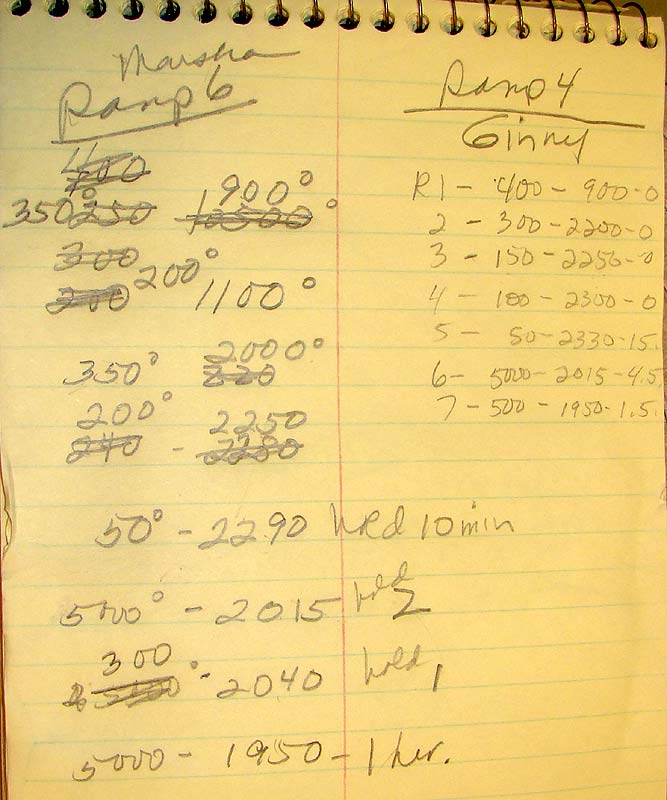 Marsha
Ramp 6
350° 250 900°
12500°
300
200 200° 1100°
350° 2000°
220
200° 2250
240 - 2280
50° - 2290 hold 10 min
5000° - 2015 hold 2
300
° - 2040 hold 1
5000 - 1950 - 1 hr.
Ramp 4
Ginny
R1 - 400 - 900-0
2 - 300-2200-0
3 - 150-2250-0
4 - 100-2300-0
5 - 50-2330-15.
6 - 5000-2015-4.5
7 - 500-1950-1.5.